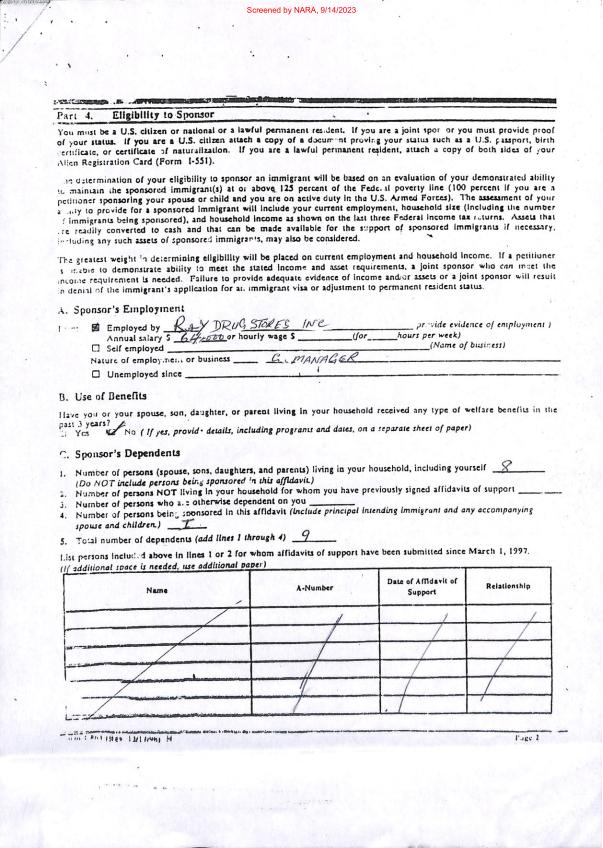 Screened by NARA, 9/14/2023
Part 4. Eligibility to Sponsor
You must be a U.S. citizen or national or a lawful permanent resident. If you are a joint sponsor you must provide proof
of your status. If you are a U.S. citizen attach a copy of a document proving your status such as a U.S. passport, birth
certificate, or certificate of naturalization. If you are a lawful permanent resident, attach a copy of both sides of your
Alien Registration Card (Form I-551).
determination of your eligibility to sponsor an immigrant will be based on an evaluation of your demonstrated ability
to maintain the sponsored immigrant(s) at or above 125 percent of the Federal poverty line (100 percent if you are a
petitioner sponsoring your spouse or child and you are on active duty in the U.S. Armed Forces). The assessment of your
ability to provide for a sponsored immigrant will include your current employment, household size (including the number
f immigrants being sponsored), and household income as shown on the last three Federal income tax returns. Assets that
are readily converted to cash and that can be made available for the support of sponsored immigrants if necessary,
including any such assets of sponsored immigrants, may also be considered.
The greatest weight in determining eligibility will be placed on current employment and household income. If a petitioner
is unable to demonstrate ability to meet the stated income and asset requirements, a joint sponsor who can meet the
income requirement is needed. Failure to provide adequate evidence of income and/or assets or a joint sponsor will result
in denial of the immigrant's application for an immigrant visa or adjustment to permanent resident status.
A. Sponsor's Employment
Employed by RAY DRUG STORES INC provide evidence of employment)
Annual salary $ 64,000 or hourly wage $ (for hours per week)
Self employed (Name of business)
Nature of employment or business G. MANAGER
Unemployed since
B. Use of Benefits
Have you or your spouse, son, daughter, or parent living in your household received any type of welfare benefits in the
past 3 years?
Yes No (If yes, provide details, including programs and dates, on a separate sheet of paper)
C. Sponsor's Dependents
1. Number of persons (spouse, sons, daughters, and parents) living in your household, including yourself 8
(Do NOT include persons being sponsored in this affidavit.)
2. Number of persons NOT living in your household for whom you have previously signed affidavits of support
3. Number of persons who are otherwise dependent on you
4. Number of persons being sponsored in this affidavit (include principal intending immigrant and any accompanying
spouse and children.) I
5. Total number of dependents (add lines 1 through 4) 9
List persons included above in lines 1 or 2 for whom affidavits of support have been submitted since March 1, 1997.
(If additional space is needed, use additional paper)
Name A-Number Date of Affidavit of Support Relationship
Page 2